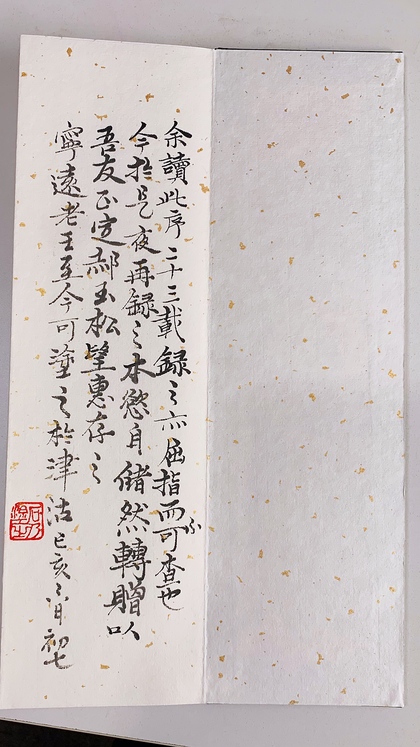 余讀此序二十三載録之亦屈指而可查也
今於是夜再録之本慾自儲然轉贈以
吾友正定郝玉松望惠存之
寧遠老王至今可塗之於津沽己亥六月初七